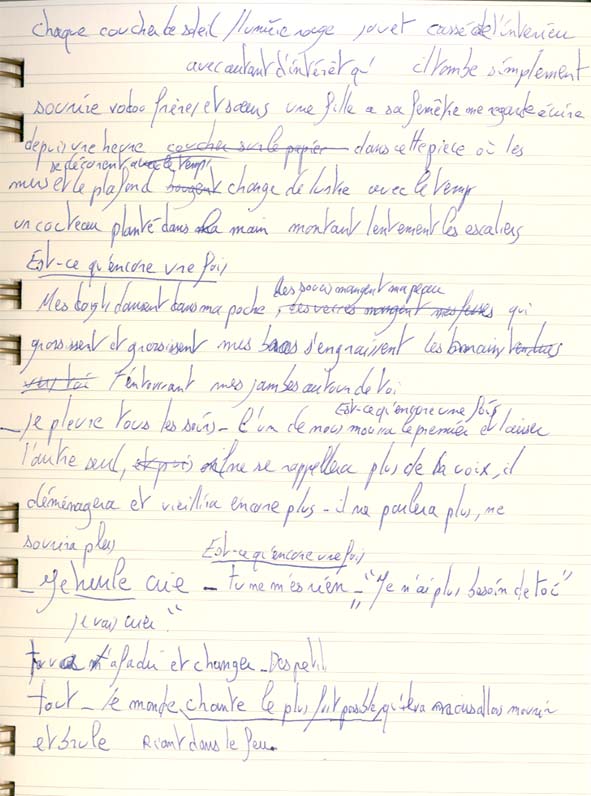 chaque coucher de soleil / lumière rouge jouet cassé de l'intérieur
avec autant d'intérêt qu' il tombe simplement
sourire vodoo frères et sœurs une fille a sa fenêtre me regarde écrire
depuis une heure coucher sur le papier dans cette pièce où les
se déforment avec le temps
murs et le plafond bougent change de lustre avec le temps
un couteau planté dans la main montant lentement les escaliers
Est-ce qu'encore une fois
les poux mangent ma peau
Mes doigts dansent dans ma poche, les verres mangent mes qui
grossissent et grossissent mes bras s'engraissent les mains tendues
vers toi t'entourant mes jambes autour de toi
Est-ce qu'encore une fois
_ je pleure tous les soirs _ l'un de nous mourra le premier et laisser
l'autre seul, et puis il ne se rappellera plus de ta voix, il
déménagera et vieillira encore plus - il ne parlera plus, ne
sourira plus
Est-ce qu'encore une fois
_ Je hurle crie _ tu ne m'es rien _ "Je n'ai plus besoin de toi"
je vais crier"
et changer _
tout _ le monde, chante le plus fort possible, mourir
et brule Riant dans le feu.